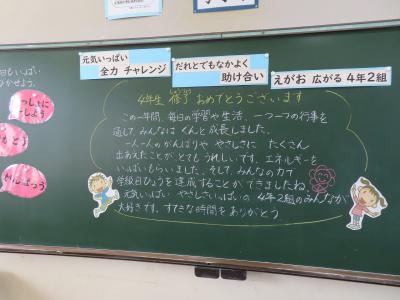 元気いっぱい
全力 チャレンジ
だれとでもなかよく
助け合い
えがお 広がる 4年2組
4年生 修了 おめでとうございます
しゅうりょう
この一年間、毎日の学習や生活、一つ一つの行事を
通して、みんなは ぐんと成長しました。
一人一人のがんばりや やさしさに たくさん
出会えたことが、とてもうれしいです。エネルギーを
いっぱいもらいました。そして、みんなの力で
学級目ひょうを達成することができましたね。
元気いっぱい やさしさいっぱいの 4年2組のみんなが
大好きです。すてきな時間をありがとう。